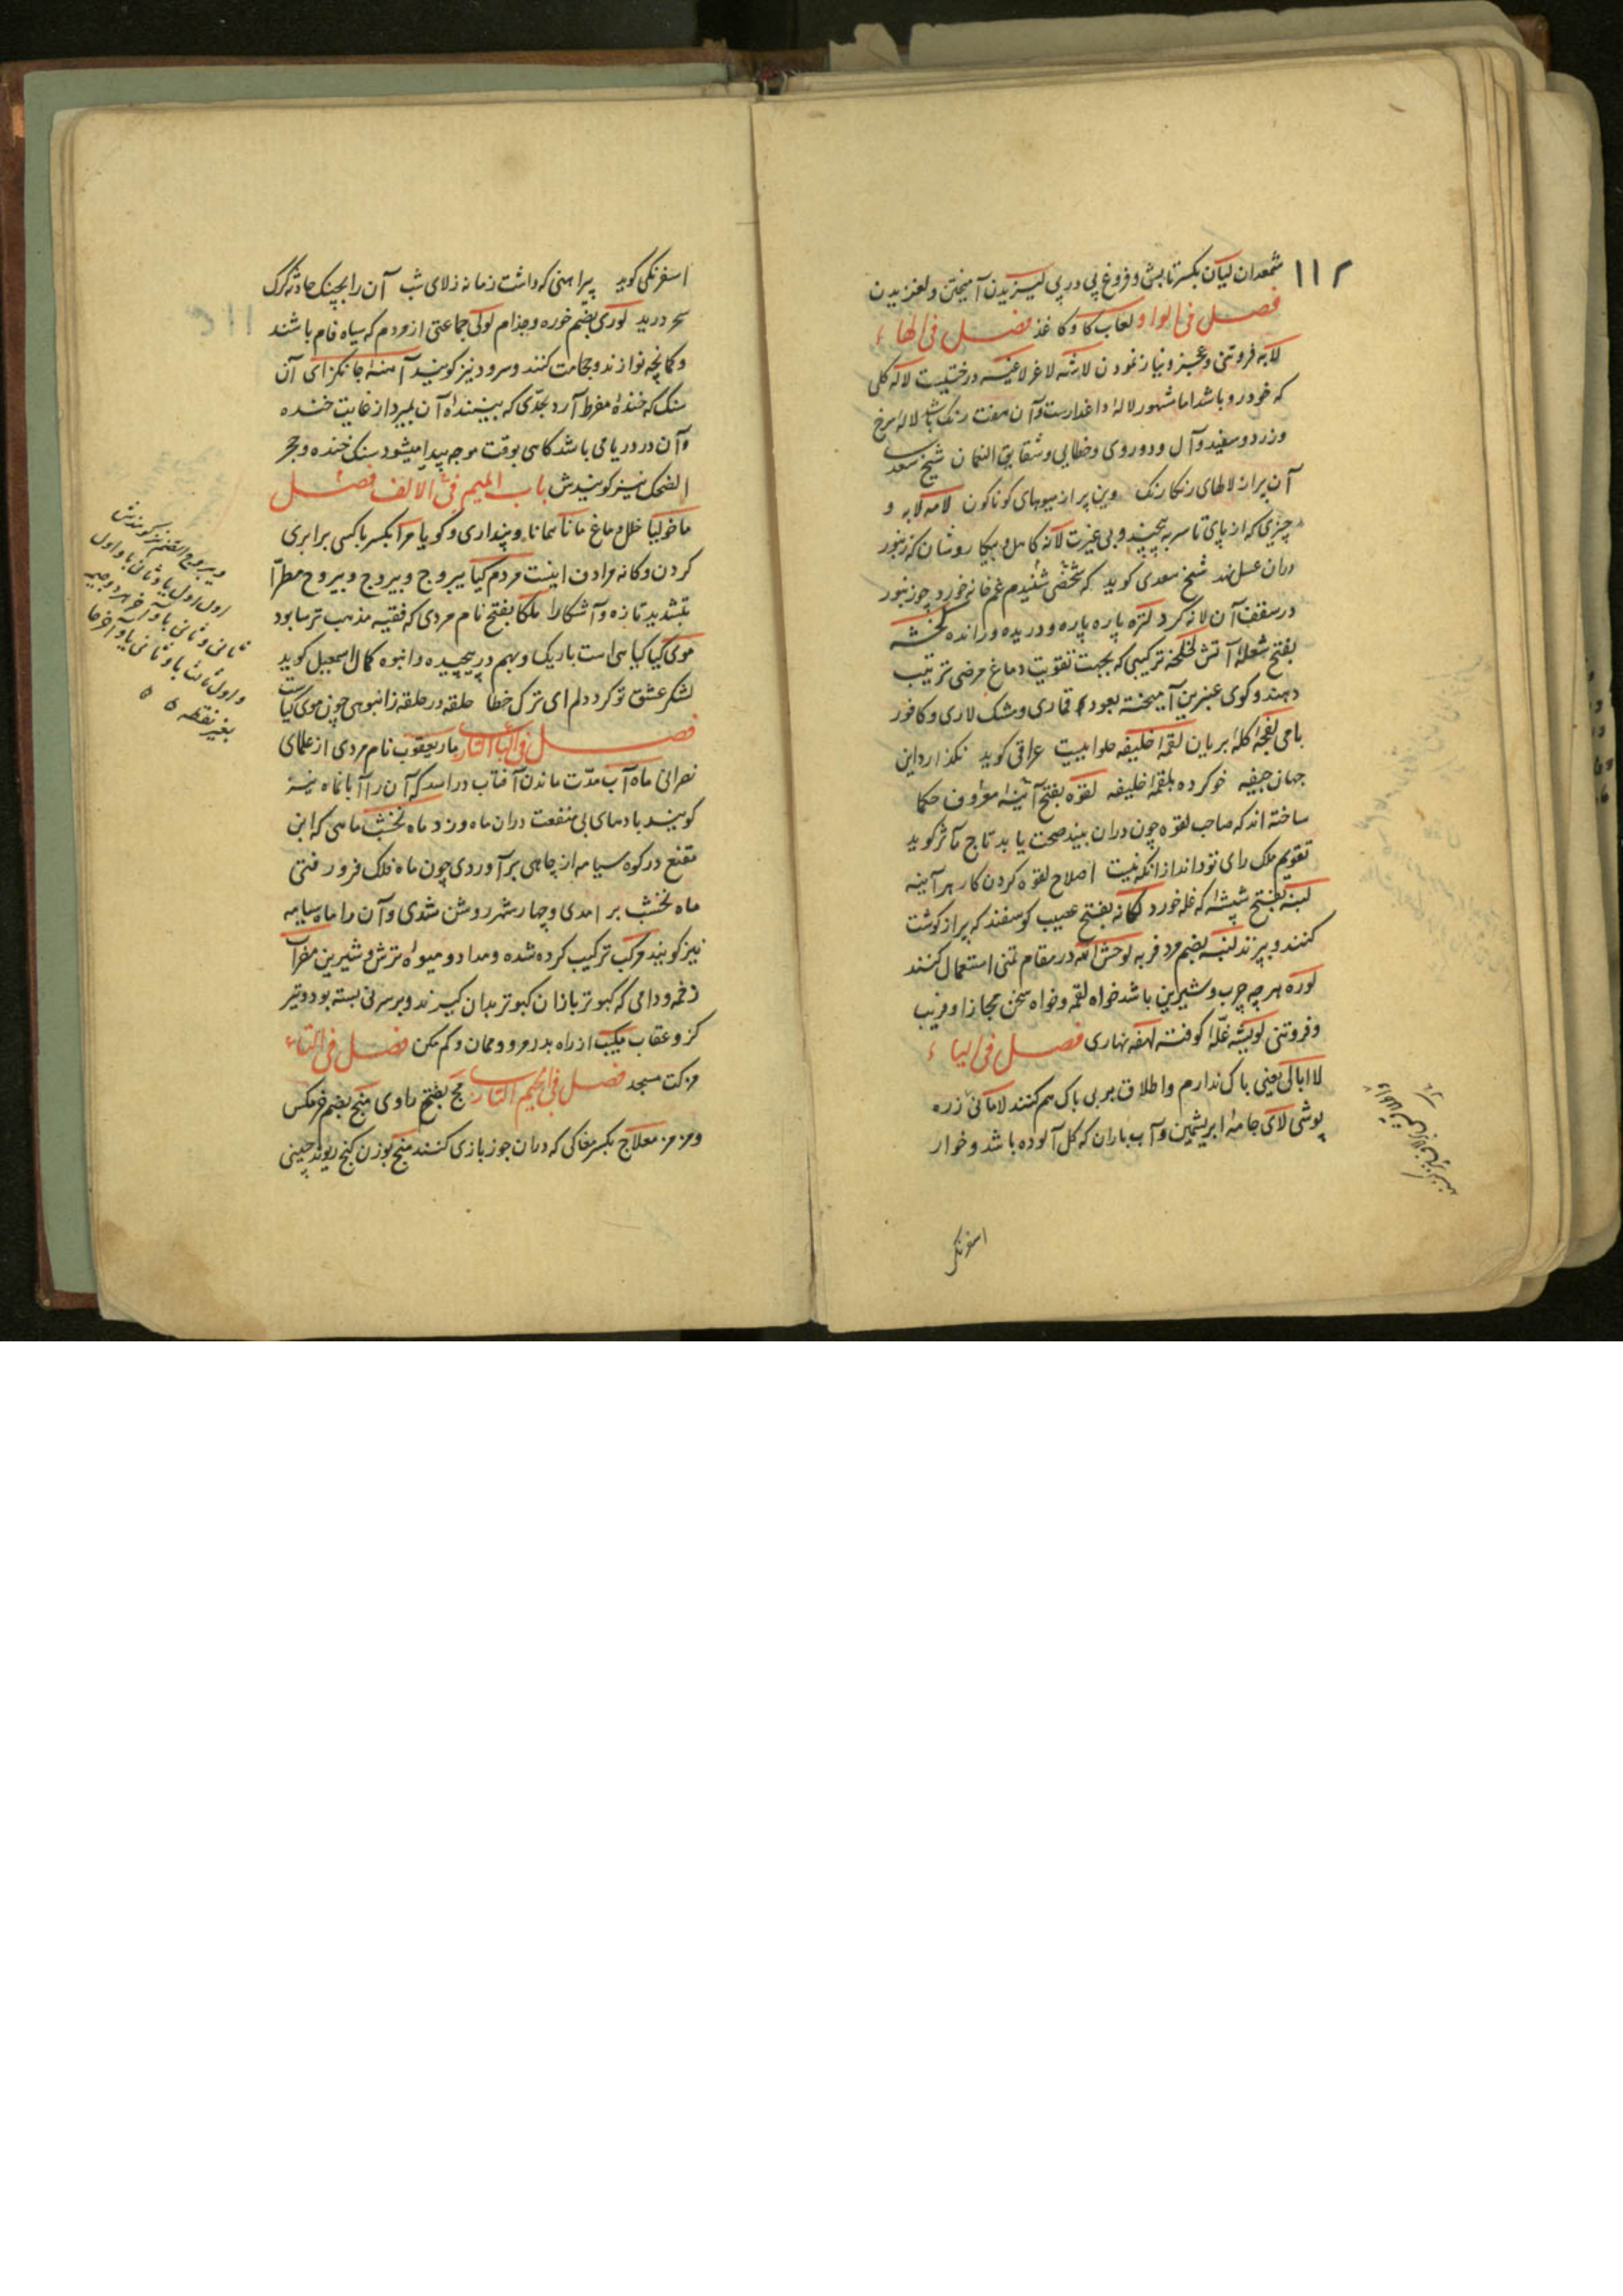 ۱۱۲
شمعدان لیان بکسر تابش و فروغ پی در پی لیزیدن آمیختن و لغزیدن
فصل فی الواو لعاب کاو کاغذ فصل فی الهاء
لابه فروتنی و عجز و نیاز نمودن لاشه لاغر لاغیه درختیست لاله کلی
که خودرو باشد اما مشهور لاله داغدارست و آن هفت رنک باشد لاله سرخ
وزرد و سفید و آل و دوروی و خطایی و شقایق النعمان شیخ سعدی
آن پر از لالهای رنکارنک وین پر از میوهای کوناکون لامه لابه و
چیزی که از پای تا سر به پیچیند و بی غیرت لانه کاهل و بیکار و شان که زنبور
دران عسل نهد شیخ سعدی کوید که شخصی شنیدم غم خانه خورد چو زنبور
در سقف آن لانه کرد لتره پاره پاره و دریده و رانده لخشه
بفتح شعلهٔ آتش لخلخه ترکیبی که بجهت تقویت دماغ مرضی ترتیب
دهند و کوی عنبرین آمیخته بعود قماری و مشک لاری و کافور
بامی لفجه کلهٔ بریان لقمهٔ خلیفه حلواییست عراقی کوید نکذارد این
جهان جیفه خوکرده بلقمهٔ خلیفه لقوه بفتح آئینهٔ معروف حکما
ساخته اند که صاحب لقوه چون دران بیند صحت یابد تاج مآثر کوید
تقویم ملک رای تو داند از انکه نیست اصلاح لقوه کردن کار هر آیینه
لبنه بفتح شپشهٔ که غله خورد لکانه بفتح عصیب کوسفند که پر از کوشت
کنند و بپزند لنبه بضم مرد فربه لوحش الله در مقام تمنی استعمال کنند
لوره هر چه چرب و شیرین باشد خواه لقمه و خواه سخن مجازا و فریب
و فروتنی لویشه غلهٔ کوفته لهفه نهاری فصل فی الیاء
لاابالی یعنی باک ندارم و اطلاق بر بی باک هم کنند لامانی زره
پوشی لای جامهٔ ابریشمین و آب باران که کل آلوده باشد و خوار
اسفرنکی
اسفرنکی کوید پیراهنی که داشت زمانه ز لای شب آن را بچنک حادثه کرک
سحر درید لوری بضم خوره و جذام لولی جماعتی از مردم که سیاه فام باشند
و کمانچه نوازند و حجامت کنند و سرود نیز کویند آهنهٔ جانکزای آن
سنک که خندهٔ مفرط آرد بحدّی که بینندهٔ آن بمیرد از غایت خنده
و آن در دریا می باشد کاهی بوقت موجه پیدا میشود سنک خنده و حجر
الضحک نیز کویندش باب المیم فی الالف فصل
ماخولیا خلل دماغ مانا همانا و پنداری و کویا مرا بکسر با کسی برابری
کردن و کانه مرادف اینست مردم کیا یبروج و بیروج و بیروح مطرّا
بتشدید تازه و آشکارا ملکا بفتح نام مردی که فقیه مذهب ترسا بود
موی کیا کیاهی است باریک و بهم در پیچیده و انبوه کمال اسمعیل کوید
لشکر عشق تو کرد دلم ای ترک خطا حلقه در حلقه ز انبوهی چون موی کیاست
فصل فی الباء التازی مار یعقوب نام مردی از علمای
نصرانی ماه آب مدّت ماندن آفتاب در اسد که آن را آبانماه نیز
کویند بادهای بی منفعت دران ماه وزد ماه نخشب ماهی که ابن
مقنع در کوه سیام از چاهی بر آوردی چون ماه فلک فرو رفتی
ماه نخشب بر امدی و چهار شهر روشن شدی و آن را ماه سیامه
نیز کویند مرکب ترکیب کرده شده و مداد و میوهٔ ترش و شیرین مضراب
زخمه و دامی که کبوتر بازان کبوتر بدان کیرند و بر سر نی بسته بود و تیر
کز و عقاب میکب از راه بدر مرو و ممان و کم مکن فصل فی التاء
مزکت مسجد فصل فی الجیم التازی مج بفتح راوی منج بضم خرمکس
و مزمز معلاج بکسر مغاکی که دران جوز بازی کنند منج بوزن کنج ریوند چینی
و یبروج الصنم نیز کویندش
اول اول یا و ثانی با و اول
ثانی و ثانی با و آخر هر دو جیم
و اول ثالث با و ثانی یا و آخر حا
بغیر نقطه